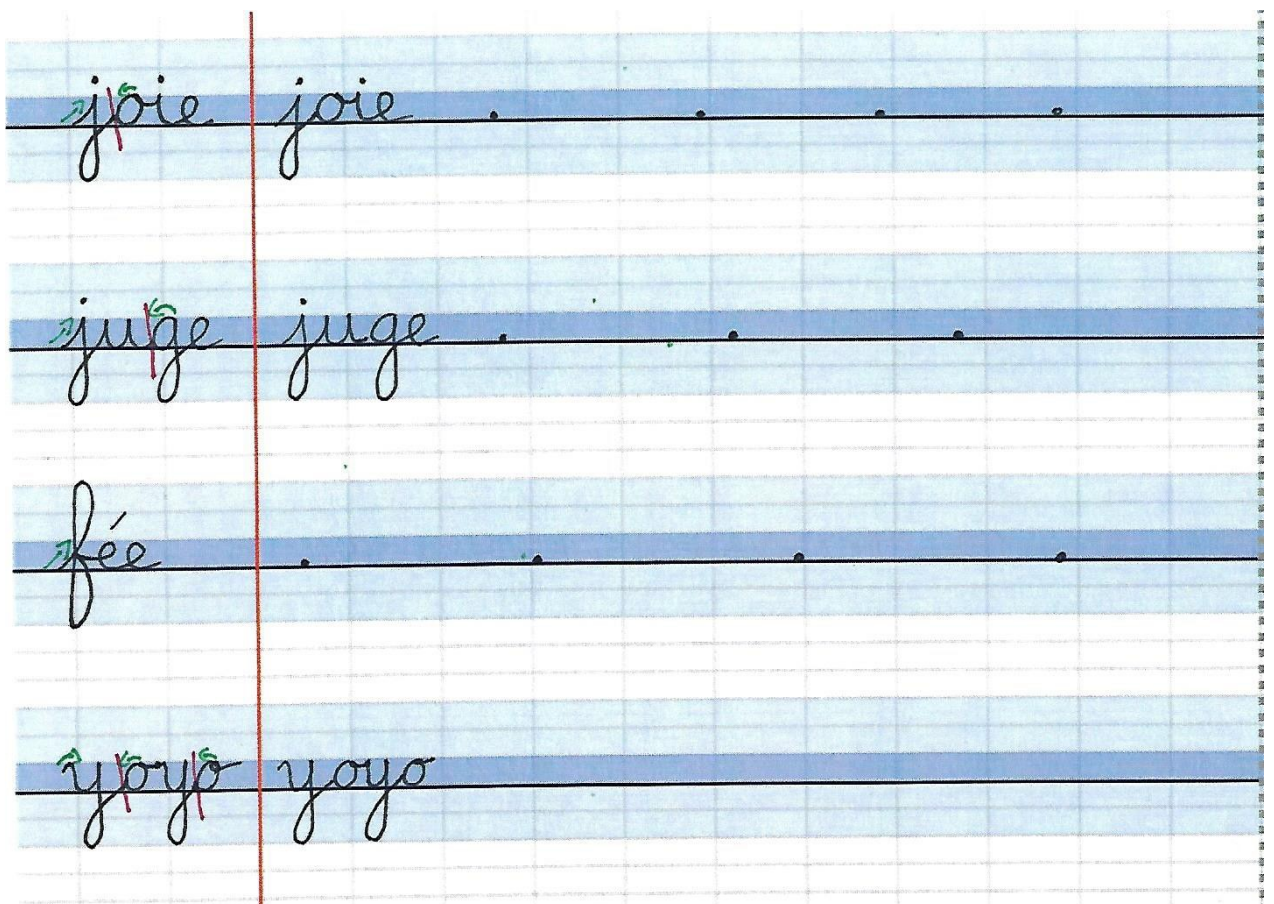 joie joie
juge juge
fée
yoyo yoyo